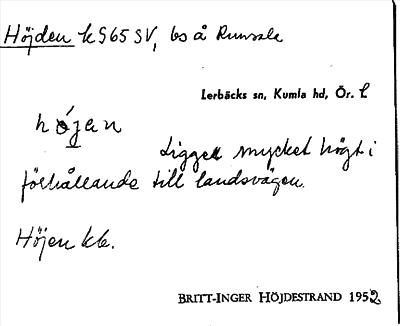 Höjden k S65 SV, bs å Runsala
Lerbäcks sn, Kumla hd, Ör. l
höjan
Ligger mycket högt i
förhållande till landsvägen.
Höjen kb.
BRITT-INGER HÖJDESTRAND 1952